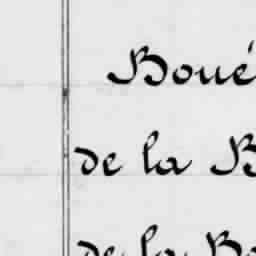 Boué
de la B
de la Bo